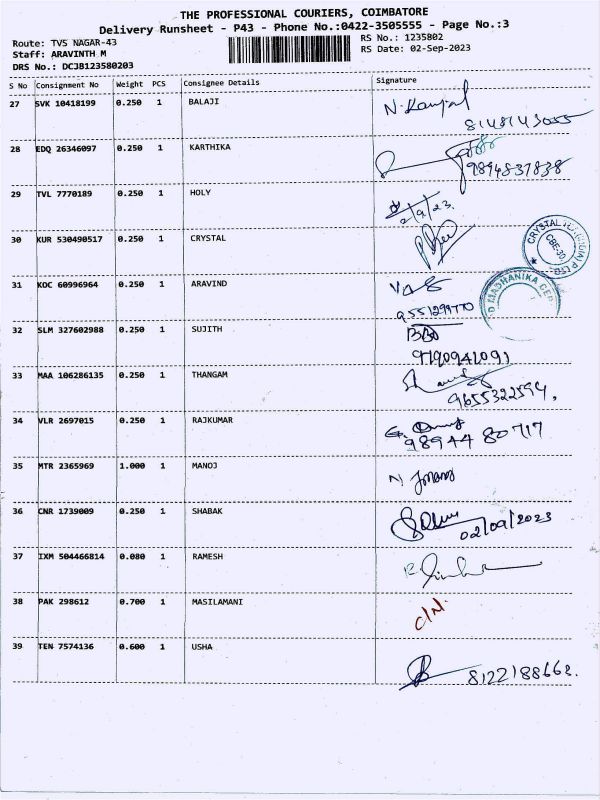 THE PROFESSIONAL COURIERS, COIMBATORE
Delivery Runsheet - P43 - Phone No.:0422-3505555 - Page No.:3
Route: TVS NAGAR-43 RS No.: 1235802
Staff: ARAVINTH M RS Date: 02-Sep-2023
DRS No.: DCJB123580203
S No Consignment No Weight PCS Consignee Details Signature
27 SVK 10418199 0.250 1 BALAJI
8148143055
28 EDQ 26346097 0.250 1 KARTHIKA
9894837838
29 TVL 7770189 0.250 1 HOLY
2/9/23.
30 KUR 530490517 0.250 1 CRYSTAL
CRYSTAL
CBE-30.
31 KOC 60996964 0.250 1 ARAVIND
32 SLM 327602988 0.250 1 SUJITH
9190941091
33 MAA 106286135 0.250 1 THANGAM
9655322594.
34 VLR 2697015 0.250 1 RAJKUMAR
98944 80717
35 MTR 2365969 1.000 1 MANOJ
36 CNR 1739009 0.250 1 SHABAK
02/09/2023
37 IXM 504466814 0.080 1 RAMESH
38 PAK 298612 0.700 1 MASILAMANI
C/N.
39 TEN 7574136 0.600 1 USHA
8122188662.